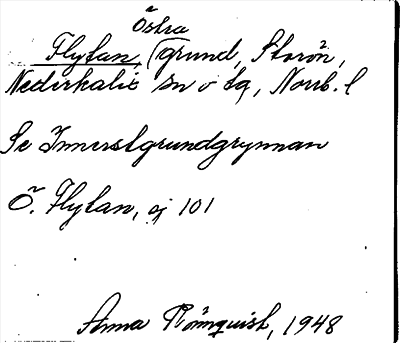 Östra
Flytan, (grund, Storön,
Nederkalix sn o tg, Norrb. l
Se Innerstgrundgrynnan
Ö. Flytan, ej 101
Anna Rönnquist, 1948